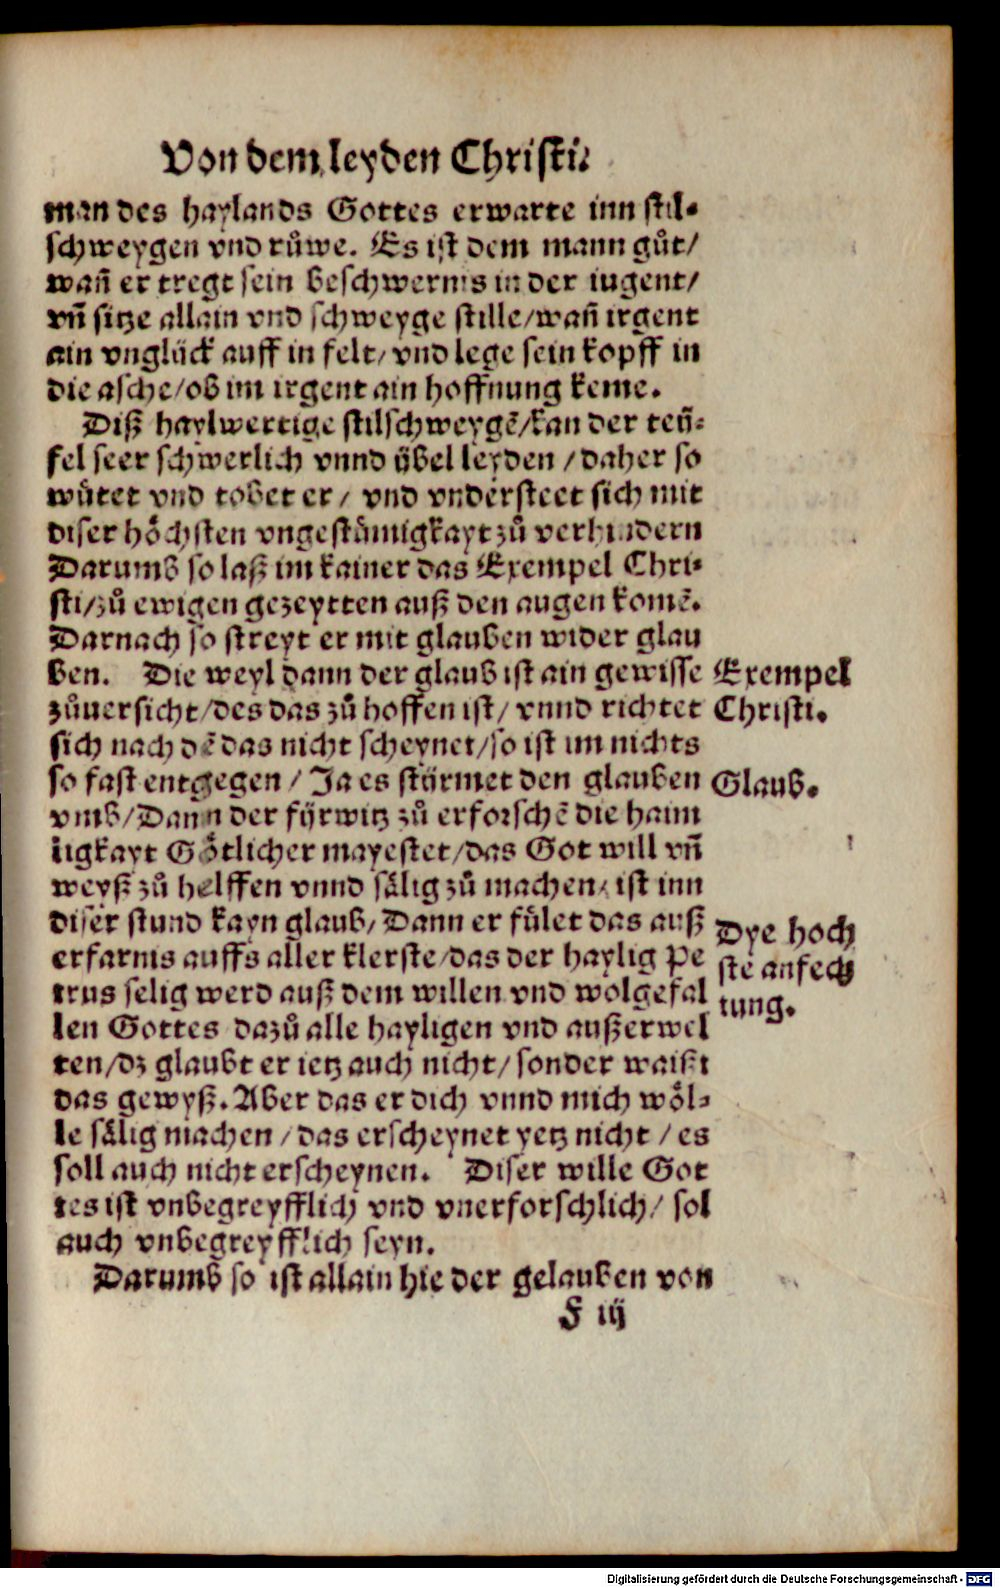 Von dem leyden Christi.
man des haylands Gottes erwarte inn stil⸗
schweygen vnd růwe. Es ist dem mann gůt/
wañ er tregt sein beschwernis in der iugent/
vñ sitze allain vnd schweyge stille/wañ irgent
ain vnglück auff in felt/ vnd lege sein kopff in
die asche/ob im irgent ain hoffnung keme.
Diß haylwertige stilschweygẽ/kan der teü⸗
fel seer schwerlich vnnd übel leyden / daher so
wütet vnd tobet er/ vnd vndersteet sich mit
diser höchsten vngestümigkayt zů verhindern
Darumb so laß im kainer das Exempel Chri⸗
sti/zů ewigen gezeytten auß den augen komẽ.
Darnach so streyt er mit glauben wider glau
ben. Die weyl dann der glaub ist ain gewisse
zůuersicht/des das zů hoffen ist/ vnnd richtet
sich nach dẽ das nicht scheynet/so ist im nichts
so fast entgegen / Ja es stürmet den glauben
vmb/Dann der fürwitz zů erforschẽ die haim
ligkayt Götlicher mayestet/das Got will vñ
weyß zů helffen vnnd sälig zů machen/ ist inn
diser stund kayn glaub/Dann er fület das auß
erfarnis auffs aller klerste/das der haylig Pe
trus selig werd auß dem willen vnd wolgefal
len Gottes dazů alle hayligen vnd außerwel
ten/dz glaubt er ietz auch nicht/ sonder waißt
das gewyß. Aber das er dich vnnd mich wöl⸗
le sälig machen / das erscheynet yetz nicht / es
soll auch nicht erscheynen. Diser wille Got
tes ist vnbegreyfflich vnd vnerforschlich/ sol
auch vnbegreyfflich seyn.
Darumb so ist allain hie der gelauben von
F iij
Exempel
Christi.
Glaub.
Dye hoch
ste anfech
tung.
Digitalisierung gefördert durch die Deutsche Forschungsgemeinschaft - DFG